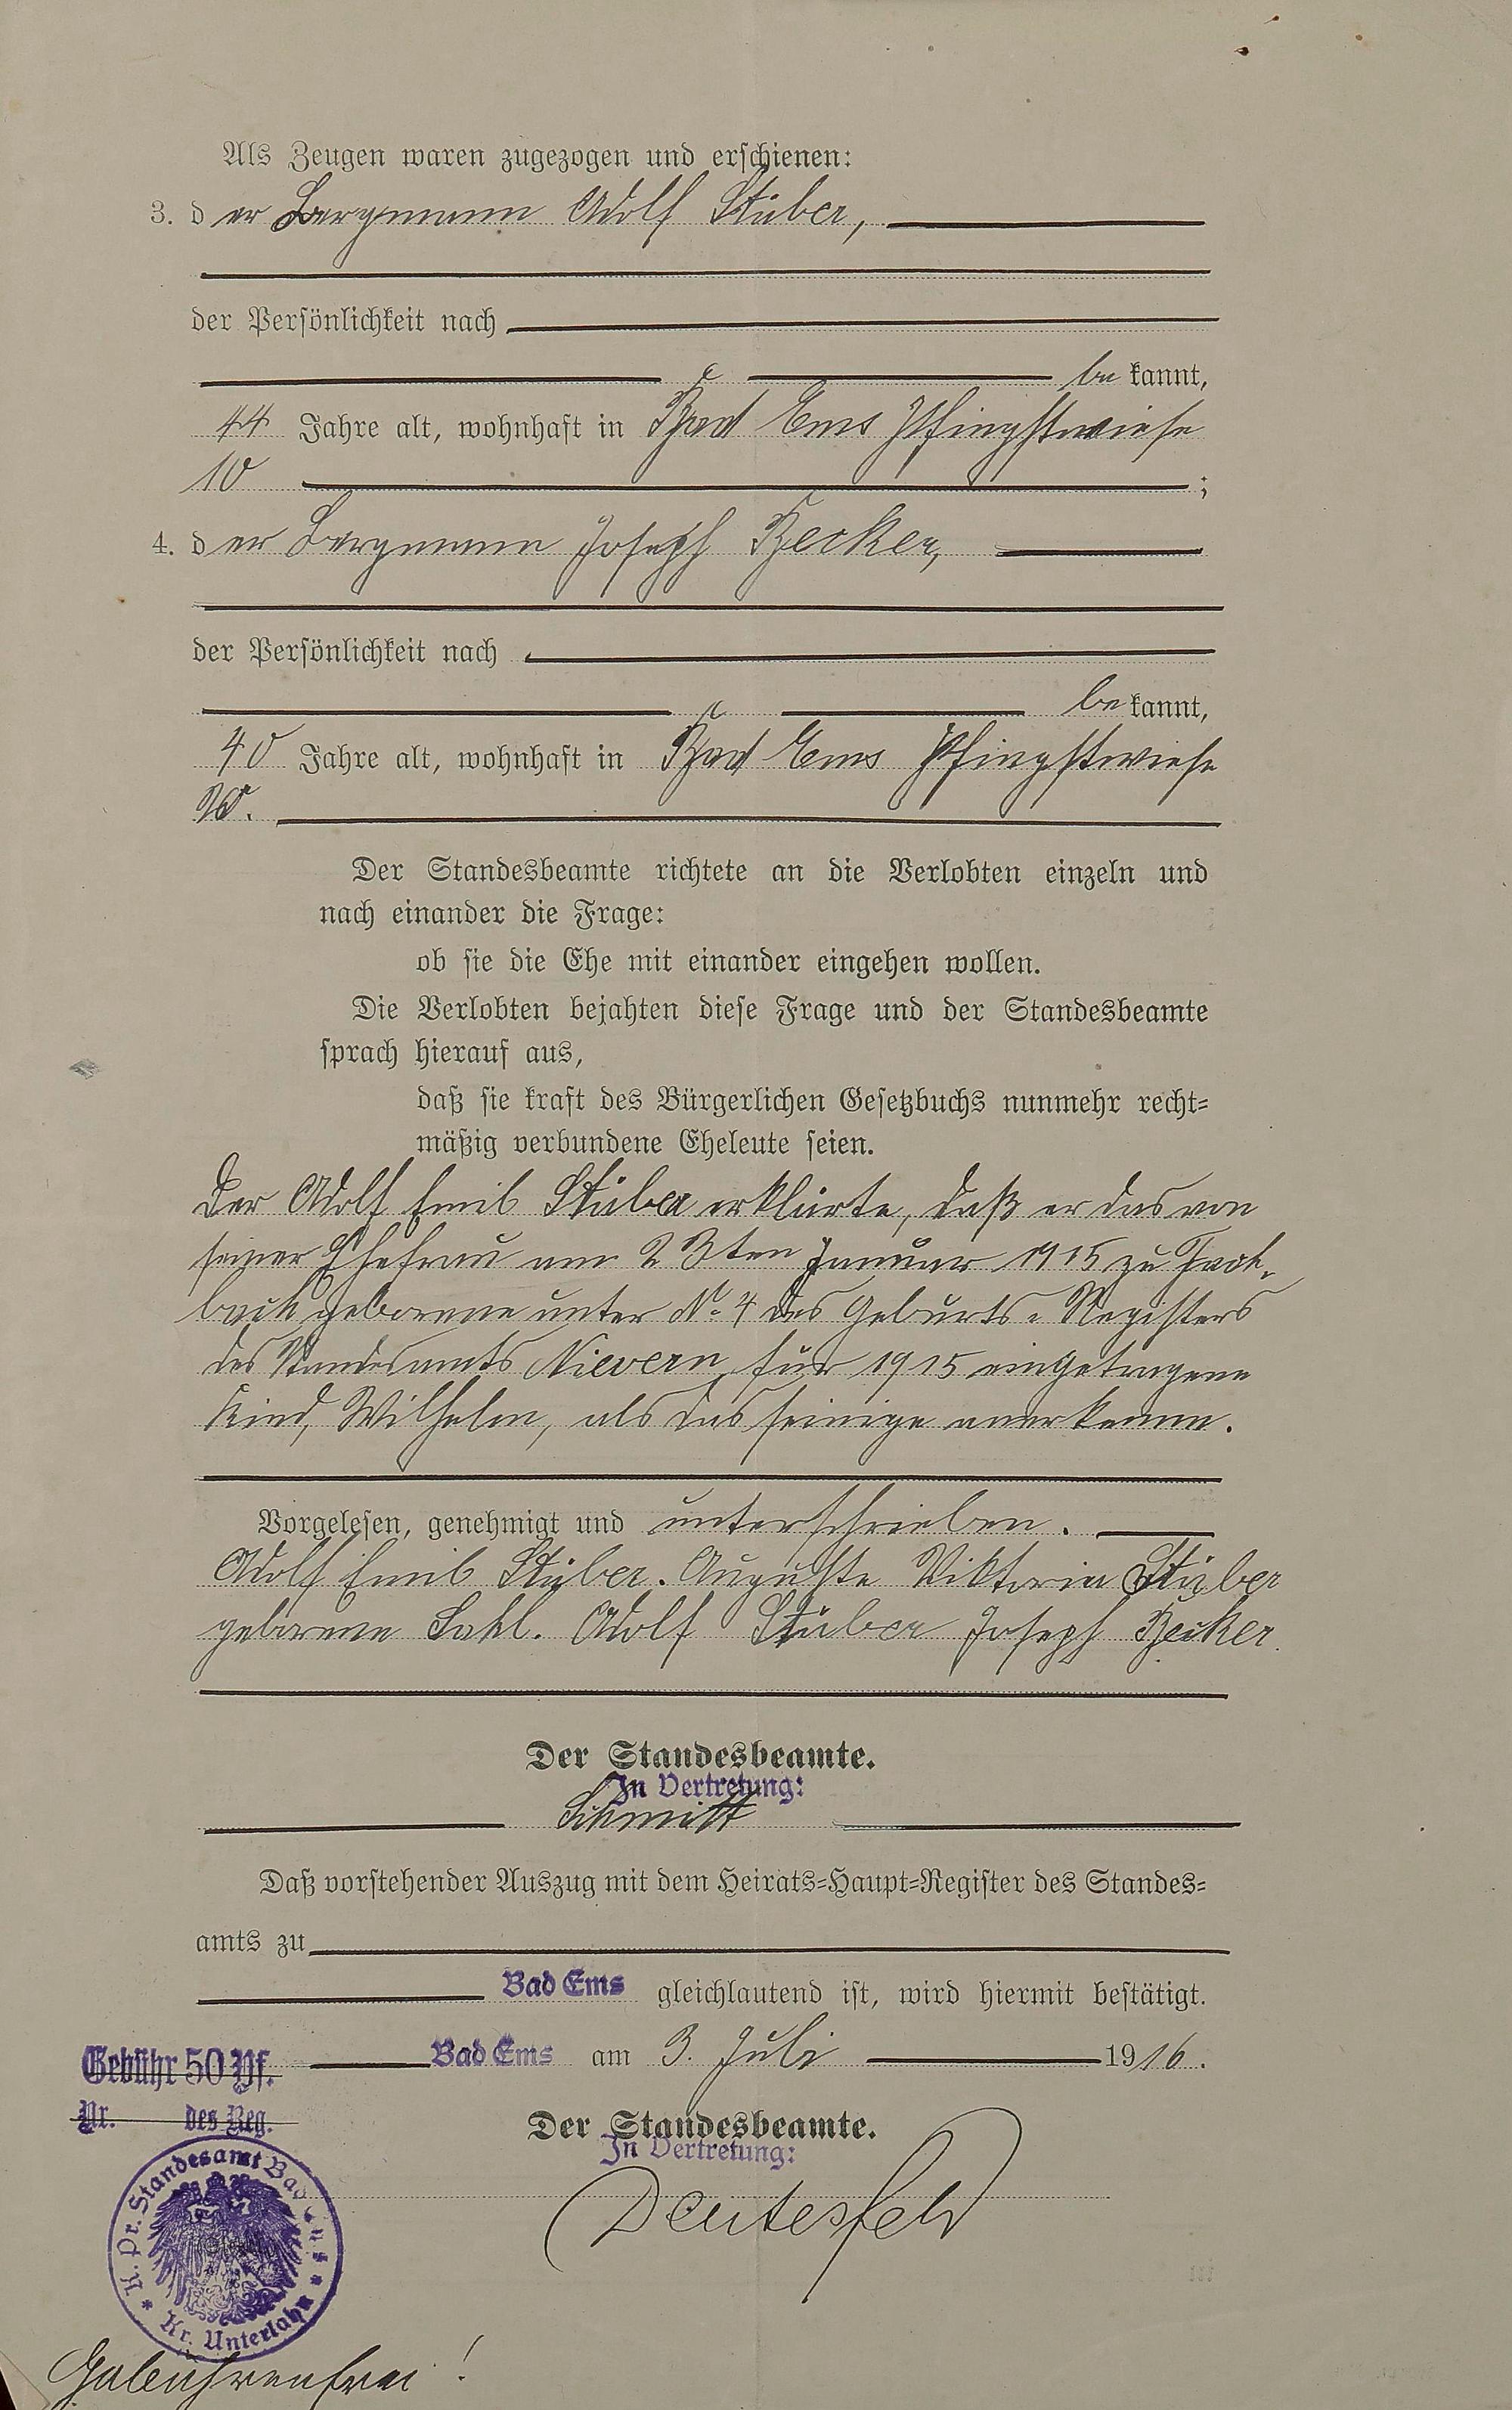 Als Zeugen waren zugezogen und erschienen:
3. der Bergmann Adolf Stüber,
der Persönlichkeit nach
bekannt,
44 Jahre alt, wohnhaft in Bad Ems Pfingstwiese
10 ;
4. der Bergmann Joseph Becker,
der Persönlichkeit nach
bekannt,
40 Jahre alt, wohnhaft in Bad Ems Pfingstwiese
Der Standesbeamte richtete an die Verlobten einzeln und
nach einander die Frage:
ob sie die Ehe mit einander eingehen wollen.
Die Verlobten bejahten diese Frage und der Standesbeamte
sprach hierauf aus,
daß sie kraft des Bürgerlichen Gesetzbuchs nunmehr recht-
mäßig verbundene Eheleute seien.
Der Adolf Emil Stüber erklärte, daß er das von
seiner Ehefrau am 23ten Januar 1915 zu Frücht
geborene unter No. 4 des Geburts-Registers
des Standesamts Nievern für 1915 eingetragene
Kind, Wilhelm, als das seinige anerkenne.
Vorgelesen, genehmigt und unterschrieben.
Adolf Emil Stüber. Auguste Viktoria Stüber
geborene Adolf Stüber Joseph Becker.
Der Standesbeamte.
In Vertretung:
Schmitt
Daß vorstehender Auszug mit dem Heirats-Haupt-Register des Standes-
amts zu
Bad Ems gleichlautend ist, wird hiermit bestätigt.
Gebühr 50 Pf.
Bad Ems am 3. Juli 1916.
Nr. des Reg.
Der Standesbeamte.
In Vertretung:
K. Pr. Standesamt Bad Ems * Kr. Unterlahn *
Gebührenfrei!